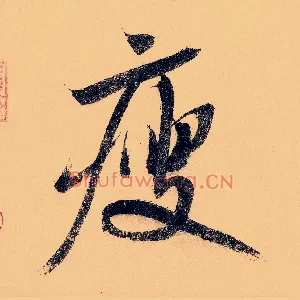 瘦
Shufawang.CN